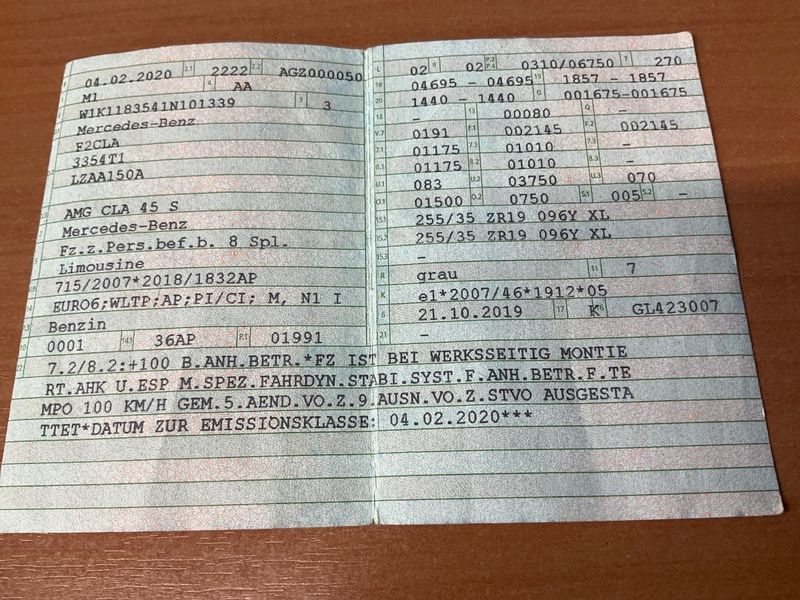 04.02.2020 2.1 2222 2.2 AGZ000050
M1 AA
W1K1183541N101339 3 3
Mercedes-Benz
F2CLA
3354T1
LZAA150A
AMG CLA 45 S
Mercedes-Benz
Fz.z.Pers.bef.b. 8 Spl.
Limousine
715/2007*2018/1832AP
EURO6;WLTP;AP;PI/CI; M, N1 I
Benzin
0001 14.1 36AP P.1 01991
L 02 9 02 P.2 P.4 0310/06750 T 270
18 04695 - 04695 19 1857 - 1857
20 1440 - 1440 G 001675-001675
12 - 13 00080 Q -
V.7 0191 F.1 002145 F.2 002145
7.1 01175 7.2 01010 7.3 -
8.1 01175 8.2 01010 8.3 -
U.1 083 U.2 03750 U.3 070
O.1 01500 O.2 0750 S.1 005 S.2 -
15.1 255/35 ZR19 096Y XL
15.2 255/35 ZR19 096Y XL
15.3 -
R grau 11 7
K e1*2007/46*1912*05
6 21.10.2019 17 K 16 GL423007
21 -
7.2/8.2:+100 B.ANH.BETR.*FZ IST BEI WERKSSEITIG MONTIE
RT.AHK U.ESP M.SPEZ.FAHRDYN.STABI.SYST.F.ANH.BETR.F.TE
MPO 100 KM/H GEM.5.AEND.VO.Z.9.AUSN.VO.Z.STVO AUSGESTA
TTET*DATUM ZUR EMISSIONSKLASSE: 04.02.2020***